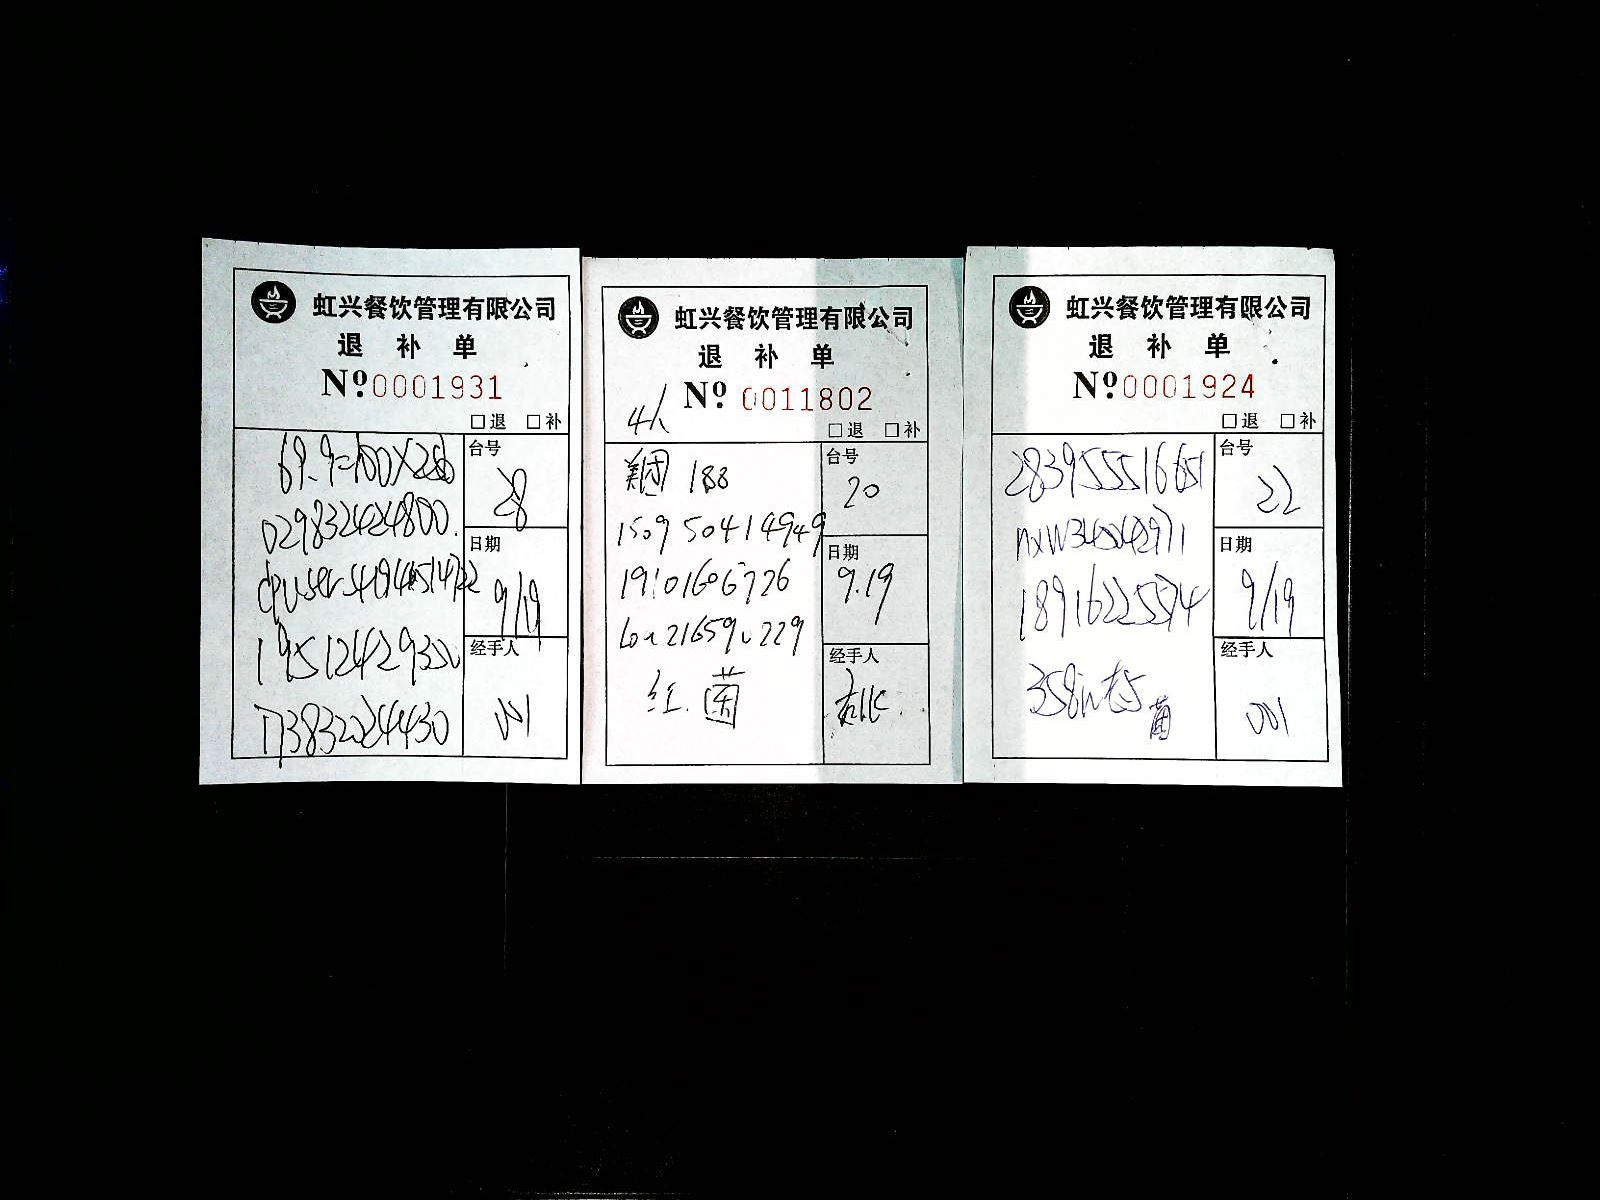 虹兴餐饮管理有限公司
退 补 单
Nº 0001931
□退 □补
69.9=100X2
029832424800.
19512429300
173832024430
台号
28
日期
9/19
经手人
001
虹兴餐饮管理有限公司
退 补 单
Nº 0011802
4人
□退 □补
美团 188
1509 50414949
19101606726
红. 菌
台号
20
日期
9.19
经手人
虹兴餐饮管理有限公司
退 补 单
Nº 0001924
□退 □补
283955516651
18916225574
菌
台号
22
日期
9/19
经手人
001